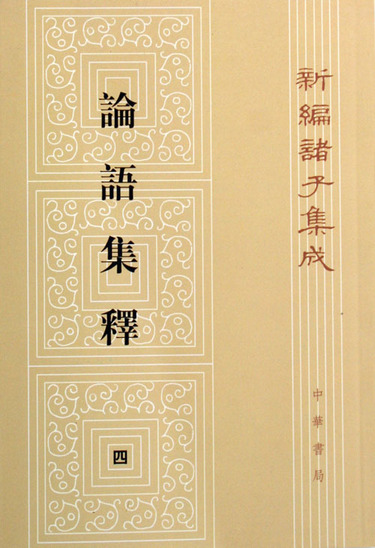 新編諸子集成
論語集釋
四
中華書局